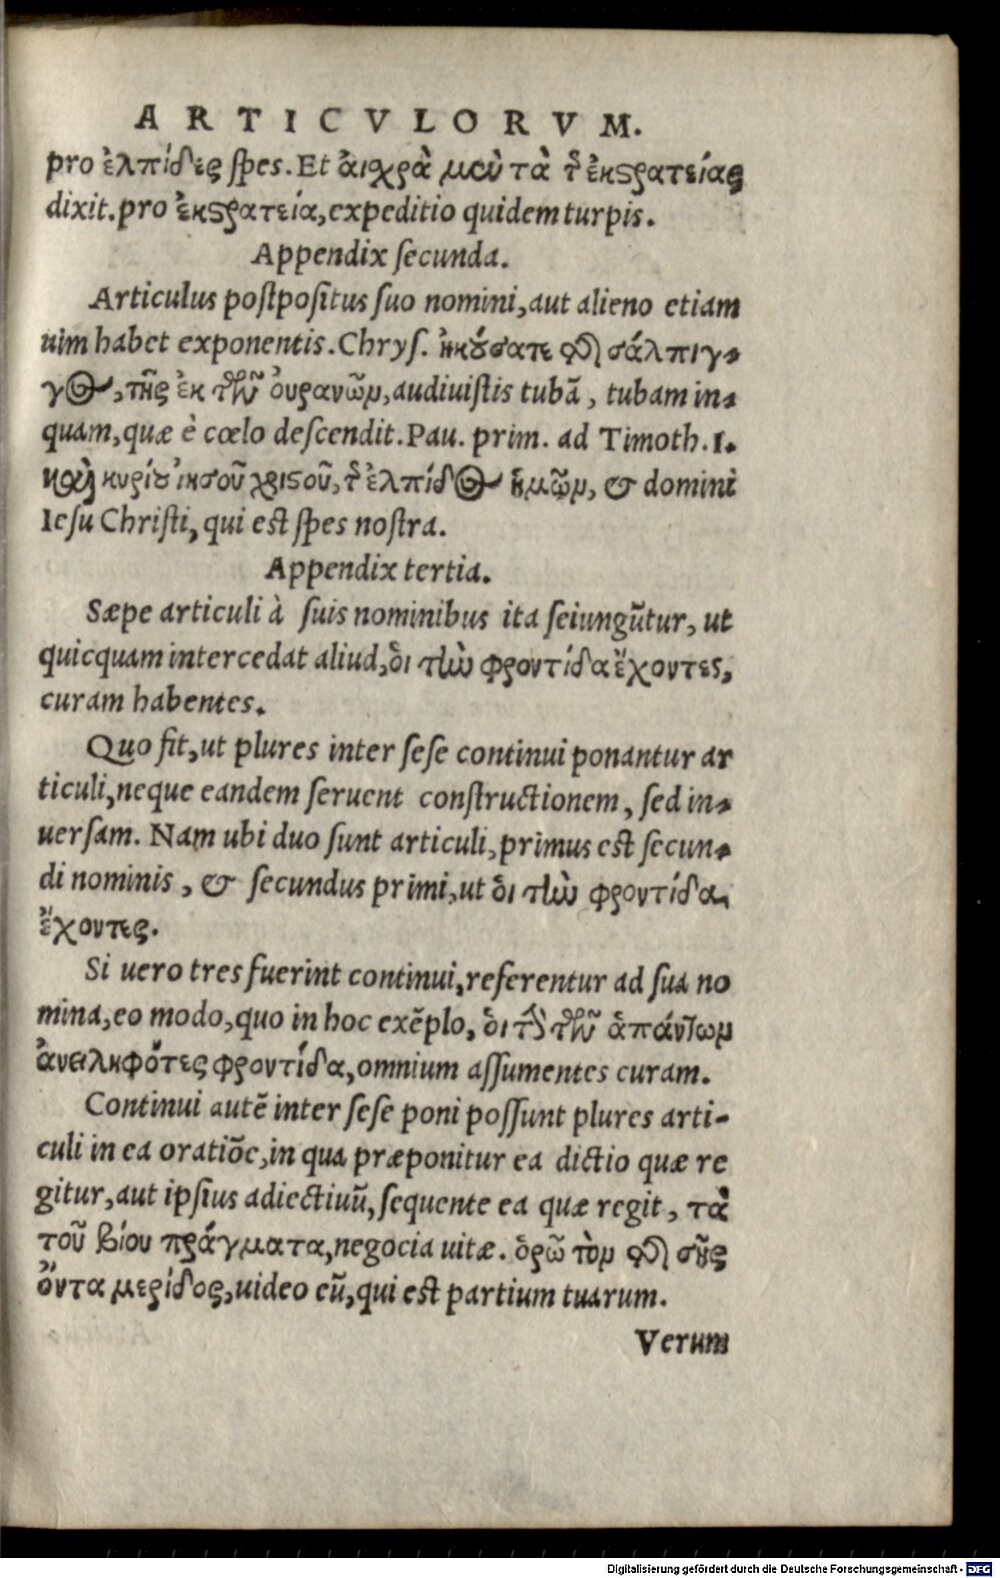 ARTICVLORVM.
pro ἐλπίδες spes. Et ἀιχρὰ μεὺ τὰ τ͂ ἐκςρατείας
dixit. pro ἐκςρατεία, expeditio quidem turpis.
Appendix secunda.
Articulus postpositus suo nomini, aut alieno etiam
uim habet exponentis. Chrys. ἠκούσατε φὴ σάλπιγ-
γος, τῆς ἐκ τῶν ὀυρανῶν, audiuistis tubā, tubam in-
quam, quæ è cœlo descendit. Pau. prim. ad Timoth. 1.
καὶ κυρίου ἰησοῦ χριςοῦ, τ͂ ἐλπίδος ἡμῶν, & domini
Iesu Christi, qui est spes nostra.
Appendix tertia.
Sæpe articuli à suis nominibus ita seiungūtur, ut
quicquam intercedat aliud, ὁι τὼ φροντίδα ἔχοντες,
curam habentes.
Quo fit, ut plures inter sese continui ponantur ar
ticuli, neque eandem seruent constructionem, sed in-
uersam. Nam ubi duo sunt articuli, primus est secun-
di nominis, & secundus primi, ut ὁι τὼ φροντίδα
ἔχοντες.
Si uero tres fuerint continui, referentur ad sua no
mina, eo modo, quo in hoc exēplo, ὁι τὼ τῶν ἁπάντων
ἀνειληφότες φροντίδα, omnium assumentes curam.
Continui autē inter sese poni possunt plures arti-
culi in ea oratiōe, in qua præponitur ea dictio quæ re
gitur, aut ipsius adiectiuū, sequente ea quæ regit, τὰ
τοῦ βίου πράγματα, negocia uitæ. ὁρῶ τὸν φὴ σῆς
ὄντα μερίδος, uideo eū, qui est partium tuarum.
Verum
Digitalisierung gefördert durch die Deutsche Forschungsgemeinschaft - DFG